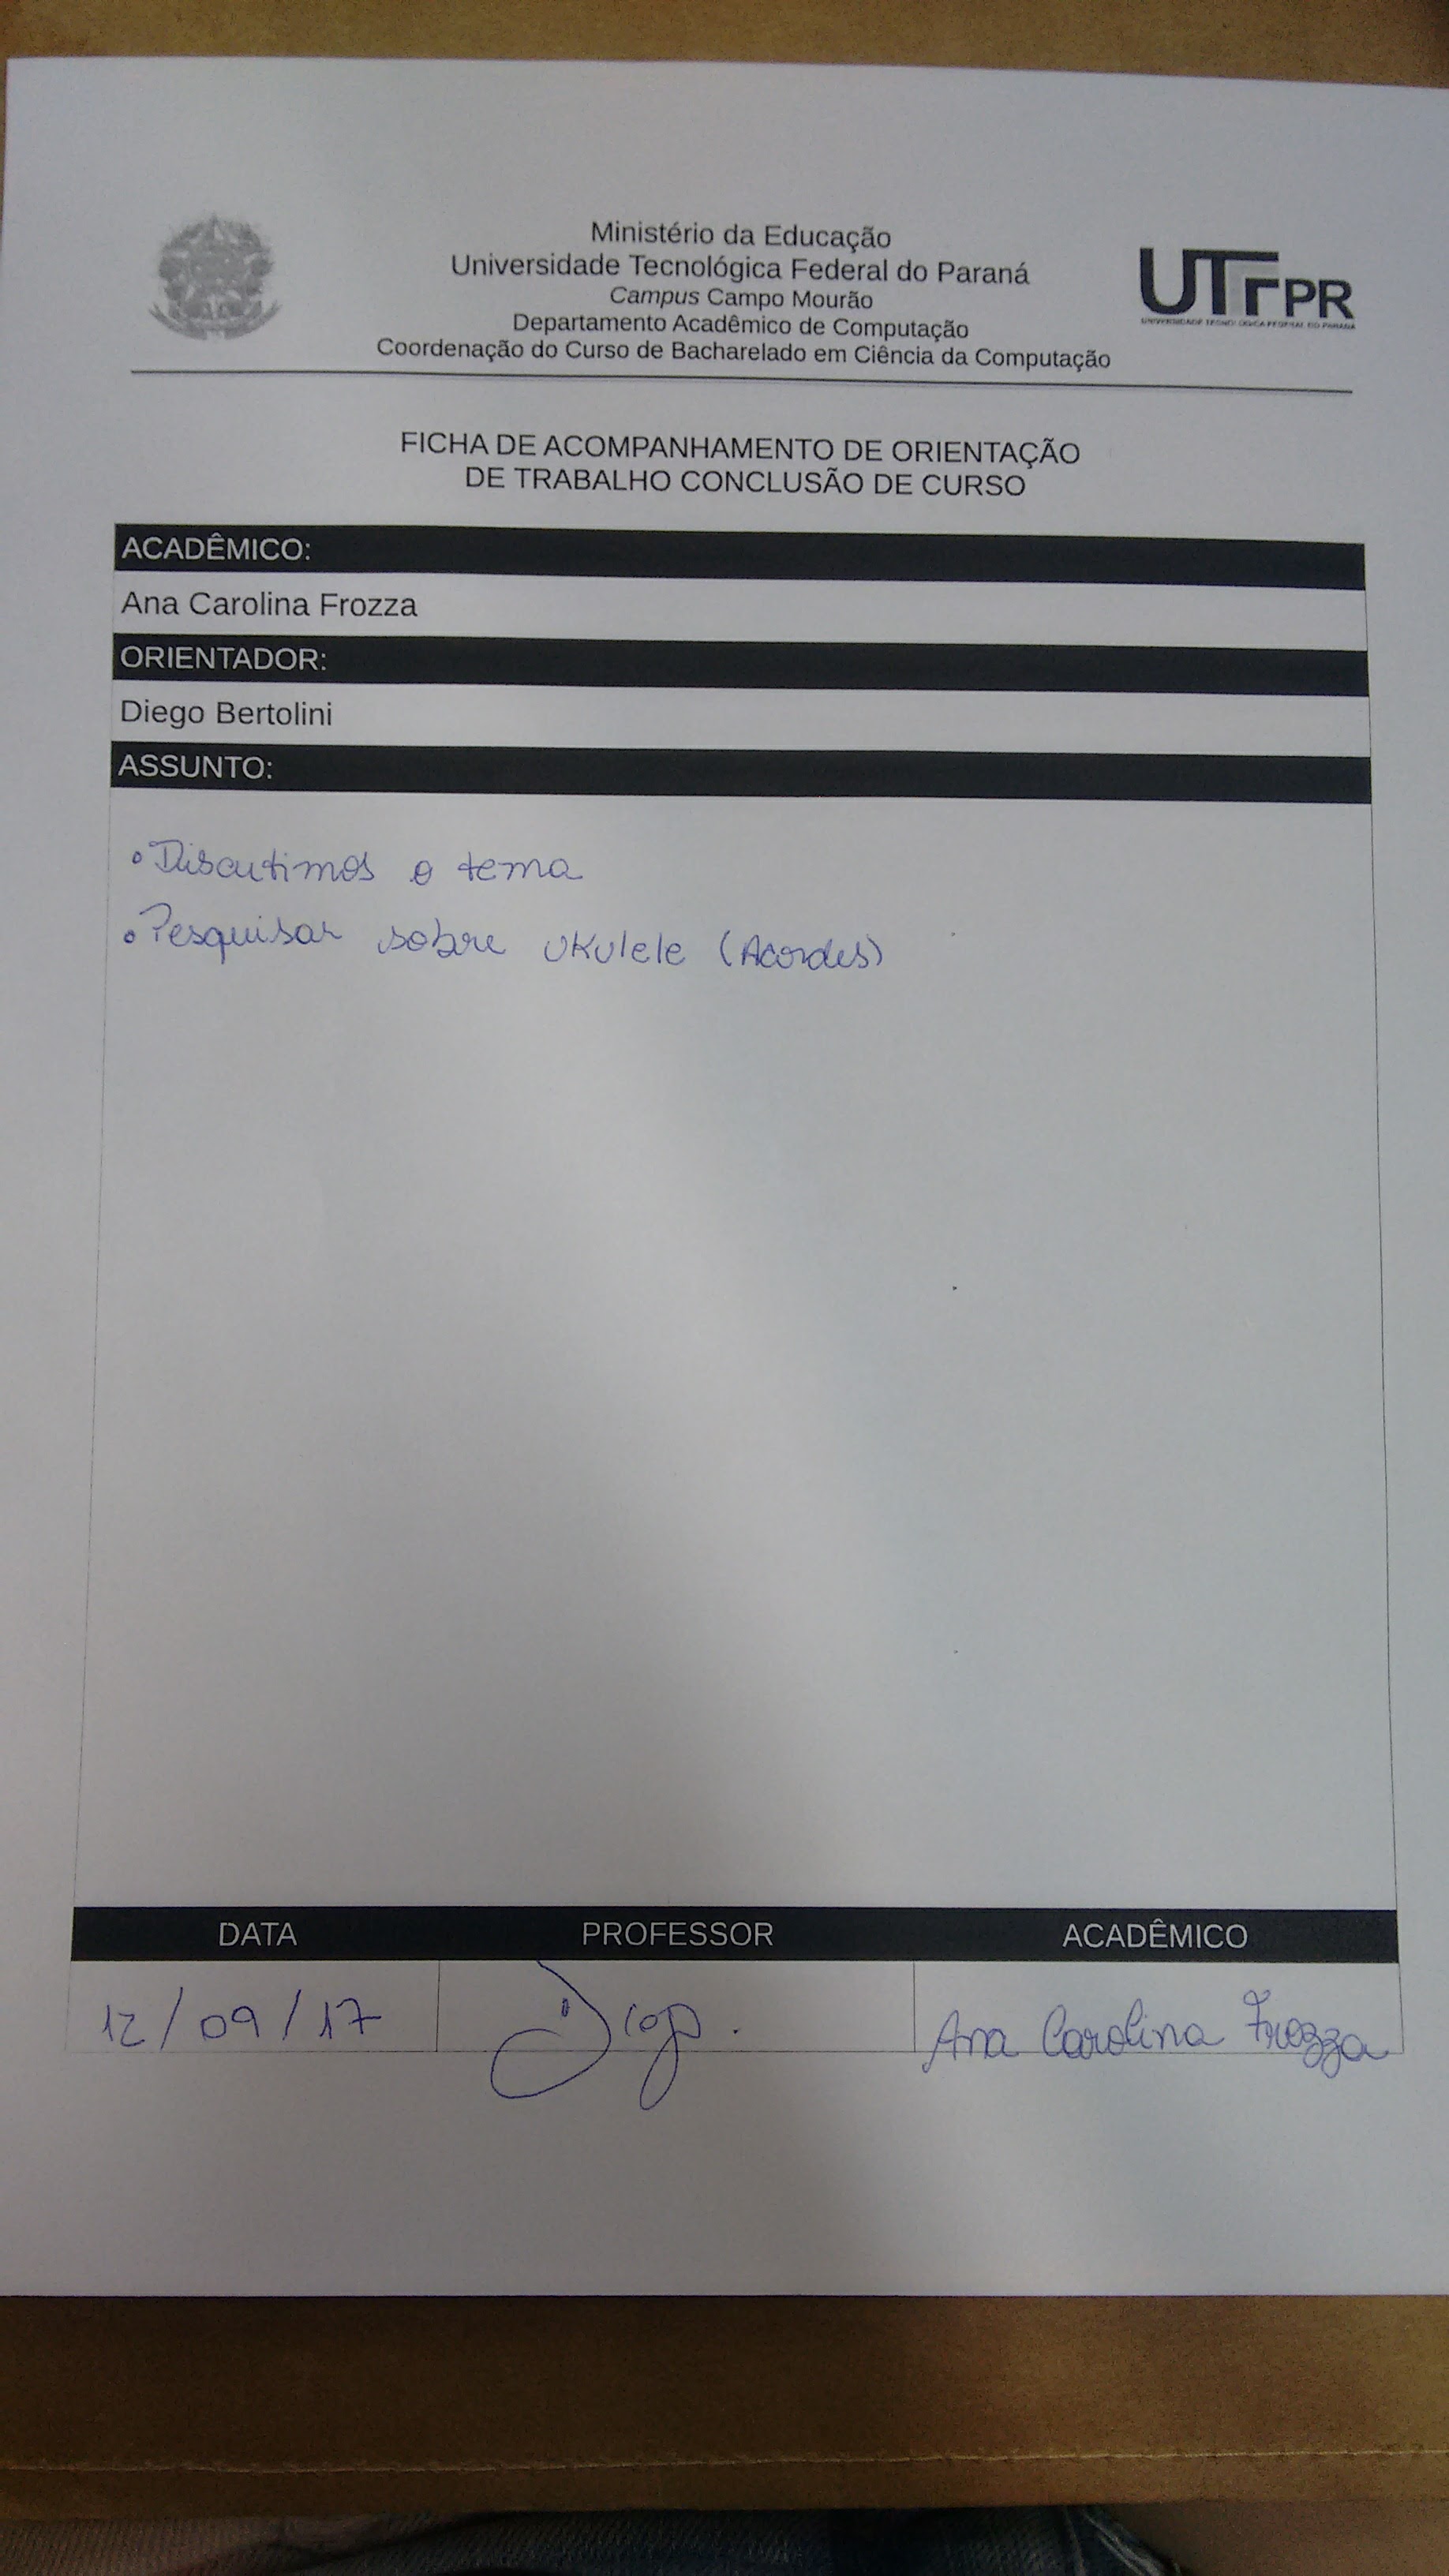 Ministério da Educação
Universidade Tecnológica Federal do Paraná
Campus Campo Mourão
Departamento Acadêmico de Computação
Coordenação do Curso de Bacharelado em Ciência da Computação
UTFPR
UNIVERSIDADE TECNOLÓGICA FEDERAL DO PARANÁ
FICHA DE ACOMPANHAMENTO DE ORIENTAÇÃO
DE TRABALHO CONCLUSÃO DE CURSO
ACADÊMICO:
Ana Carolina Frozza
ORIENTADOR:
Diego Bertolini
ASSUNTO:
• Discutimos o tema
• Pesquisar sobre ukulele (Acordes)
DATA PROFESSOR ACADÊMICO
12/09/17 Diego. Ana Carolina Frozza